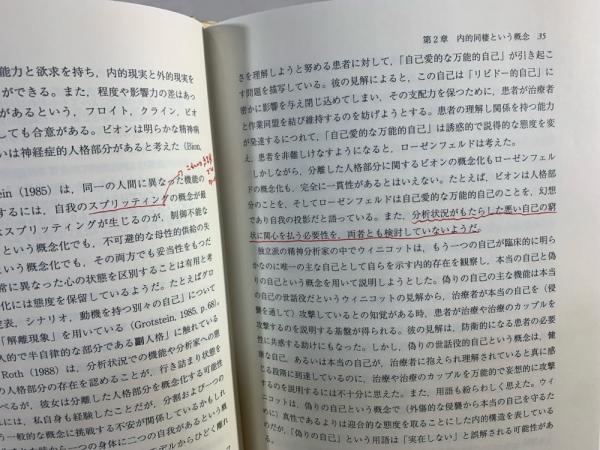 能力と欲求を持ち，内的現実と外的現実を
ができる。また，程度や影響力の差はあっ
があるという，フロイト，クライン，ビオ
しても合意がある。ビオンは明らかな精神病
いは神経症的人格部分があると考えた（Bion,
tein (1985) は，同一の人間に異なった機能の
するには，自我のスプリッティングの概念が最
スプリッティングが生じるのが，制御不能な
という概念化でも，不可避的な母性的供給の失
という概念化でも，その両方でも妥当性をもつだ
常に異なった心の状態を区別することは有用と考
化には態度を保留しているようだ。たとえばグロ
発表，シナリオ，動機を持つ別々の自己」について
「解離現象」を用いている（Grotstein, 1985, p.68）,
人的で半自律的な部分である副人格」に触れている
Roth (1988) は，分析状況での機能や分析家への態
の人格部分の存在を認めることが，行き詰まり状態を
べるが，彼女は分離した人格部分を概念化する可能性
には，私自身も経験したことだが，分割および一つの
う一般的な概念に挑戦する不安が関係しているかもしれ
から一つの身体に二つの自我があるという概
モデルからひどく離れ
第2章　内的同棲という概念　35
さを理解しようと努める患者に対して，「自己愛的な万能的自己」が引き起こ
す問題を描写している。彼の見解によると，この自己は「リビドー的自己」に
密かに影響を与え閉じ込めてしまい，その支配力を保つために，患者が治療者
と作業同盟を結び維持するのを妨げようとする。患者の理解し関係を持つ能力
が発達するにつれて，「自己愛的な万能的自己」は誘惑的で説得的な態度を変
え，患者を非難しけなすようになると，ローゼンフェルドは考えた。
しかしながら，分離した人格部分に関するビオンの概念化もローゼンフェル
ドの概念化も，完全に一貫性があるとはいえない。たとえば，ビオンは人格部
分のことを，そしてローゼンフェルドは自己愛的な万能的自己のことを，幻想
であり自我の投影だと語っている。また，分析状況がもたらした悪い自己の窮
状に関心を払う必要性を，両者とも検討していないようだ。
独立派の精神分析家の中でウィニコットは，もう一つの自己が臨床的に明ら
かなのに唯一の主な自己として自らを示す内的存在を観察し，本当の自己と偽
りの自己という概念を用いて説明しようとした。偽りの自己の主な機能は本当
の自己の世話役だというウィニコットの見解から，治療者が本当の自己を（侵
襲を通して）攻撃しているとの知覚がある時，患者が治療や治療のカップルを
攻撃するのを説明する基盤が得られる。彼の見解は，防衛的になる患者の必要
性に共感する助けにもなった。しかし，偽りの世話役的自己という概念は，健
康な自己，あるいは本当の自己が，治療者に抱えられ理解されていると真に感
じる段階に到達しているのに，治療や治療のカップルを万能的で妄想的に攻撃
するのを説明するには不十分に思えた。また，用語も紛らわしく思えた。ウィ
ニコットは，偽りの自己という概念で（外傷的な侵襲から本当の自己を守るた
めに）真性であるよりは迎合的な態度を取ることにした内的構造を表している
のだが，「偽りの自己」という用語は「実在しない」と誤解される可能性があ
る。